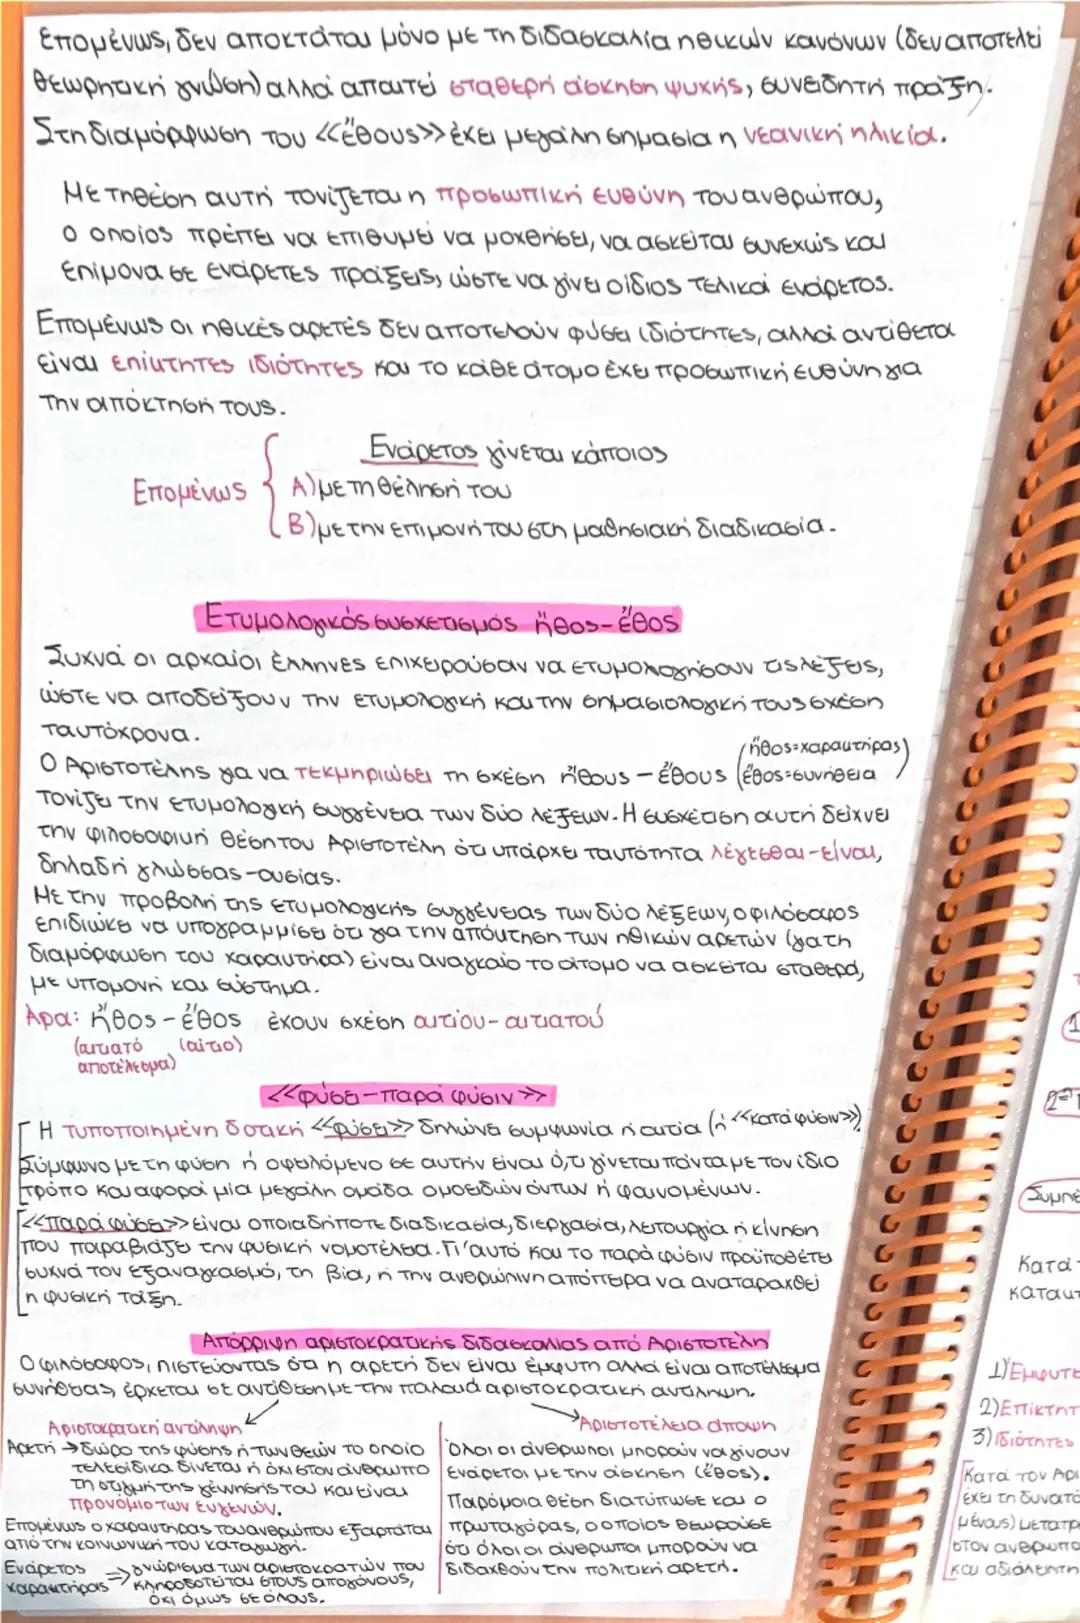 Επομένως, δεν αποκτάται μόνο με τη διδασκαλία ηθικών κανόνων (δεν αποτελεί
θεωρητική γνώση) αλλά απαιτεί σταθερή άσκηση ψυχής, συνειδητή πράξη.
Στη διαμόρφωση του <<ἔθους>> έχει μεγάλη σημασία η νεανική ηλικία.
Με τη θέση αυτή τονίζεται η προσωπική ευθύνη του ανθρώπου,
ο οποίος πρέπει να επιθυμεί να μοχθήσει, να ασκείται συνεχώς και
επίμονα σε ενάρετες πράξεις, ώστε να γίνει ο ίδιος τελικά ενάρετος.
Επομένως οι ηθικές αρετές δεν αποτελούν φύσει ιδιότητες, αλλά αντίθετα
είναι επίκτητες ιδιότητες και το κάθε άτομο έχει προσωπική ευθύνη για
την απόκτησή τους.
Ενάρετος γίνεται κάποιος
Επομένως { Α) με τη θέλησή του
Β) με την επιμονή του στη μαθησιακή διαδικασία.
Ετυμολογικός συσχετισμός ἦθος-ἔθος
Συχνά οι αρχαίοι έλληνες επιχειρούσαν να ετυμολογήσουν τις λέξεις,
ώστε να αποδείξουν την ετυμολογική και την σημασιολογική τους σχέση
ταυτόχρονα.
Ο Αριστοτέλης για να τεκμηριώσει τη σχέση ἤθους-ἔθους (ἦθος=χαρακτήρας
ἔθος=συνήθεια)
τονίζει την ετυμολογική συγγένεια των δύο λέξεων. Η συσχέτιση αυτή δείχνει
την φιλοσοφική θέση του Αριστοτέλη ότι υπάρχει ταυτότητα λέγεσθαι-είναι,
δηλαδή γλώσσας-ουσίας.
Με την προβολή της ετυμολογικής συγγένειας των δύο λέξεων, ο φιλόσοφος
επιδιώκει να υπογραμμίσει ότι για την απόκτηση των ηθικών αρετών (για τη
διαμόρφωση του χαρακτήρα) είναι αναγκαίο το άτομο να ασκείται σταθερά,
με υπομονή και σύστημα.
Άρα: ἦθος-ἔθος έχουν σχέση αιτίου-αιτιατού
(αιτιατό (αίτιο)
αποτέλεσμα)
<<φύσει-παρά φύσιν>>
Η τυποποιημένη δοτική <<φύσει>> δηλώνει συμφωνία ή αιτία (ή <<κατά φύσιν>>)
Σύμφωνο με τη φύση ή οφειλόμενο σε αυτήν είναι ό,τι γίνεται πάντα με τον ίδιο
τρόπο και αφορά μία μεγάλη ομάδα ομοειδών όντων ή φαινομένων.
<<παρά φύσει>> είναι οποιαδήποτε διαδικασία, διεργασία, λειτουργία ή κίνηση
που παραβιάζει την φυσική νομοτέλεια. Γι'αυτό και το παρά φύσιν προϋποθέτει
συχνά τον εξαναγκασμό, τη βία, ή την ανθρώπινη απόπειρα να αναταραχθεί
η φυσική τάξη.
Απόρριψη αριστοκρατικής διδασκαλίας από Αριστοτέλη
Ο φιλόσοφος, πιστεύοντας ότι η αρετή δεν είναι έμφυτη αλλά είναι αποτέλεσμα
συνήθειας, έρχεται σε αντίθεση με την παλαιά αριστοκρατική αντίληψη.
Αριστοκρατική αντίληψη
Αρετή → δώρο της φύσης ή των θεών το οποίο
τελεσίδικα δίνεται ή όχι στον άνθρωπο
τη στιγμή της γέννησής του και είναι
προνόμιο των ευγενών.
Επομένως ο χαρακτήρας του ανθρώπου εξαρτάται
από την κοινωνική του καταγωγή.
Ενάρετος χαρακτήρας ⇒ γνώρισμα των αριστοκρατών που
κληροδοτείται στους απογόνους,
όχι όμως σε όλους.
Αριστοτέλεια άποψη
Όλοι οι άνθρωποι μπορούν να γίνουν
ενάρετοι με την άσκηση (ἔθος).
Παρόμοια θέση διατύπωσε και ο
πρωταγόρας, ο οποίος θεωρούσε
ότι όλοι οι άνθρωποι μπορούν να
διδαχθούν την πολιτική αρετή.
1
2η
Συμπέ
Κατά
1) Έμφυτε
2) Επίκτητ
3) Ιδιότητες
Κατά τον Αρι
έχει τη δυνατό
μένους) μετατρ
στον άνθρωπο